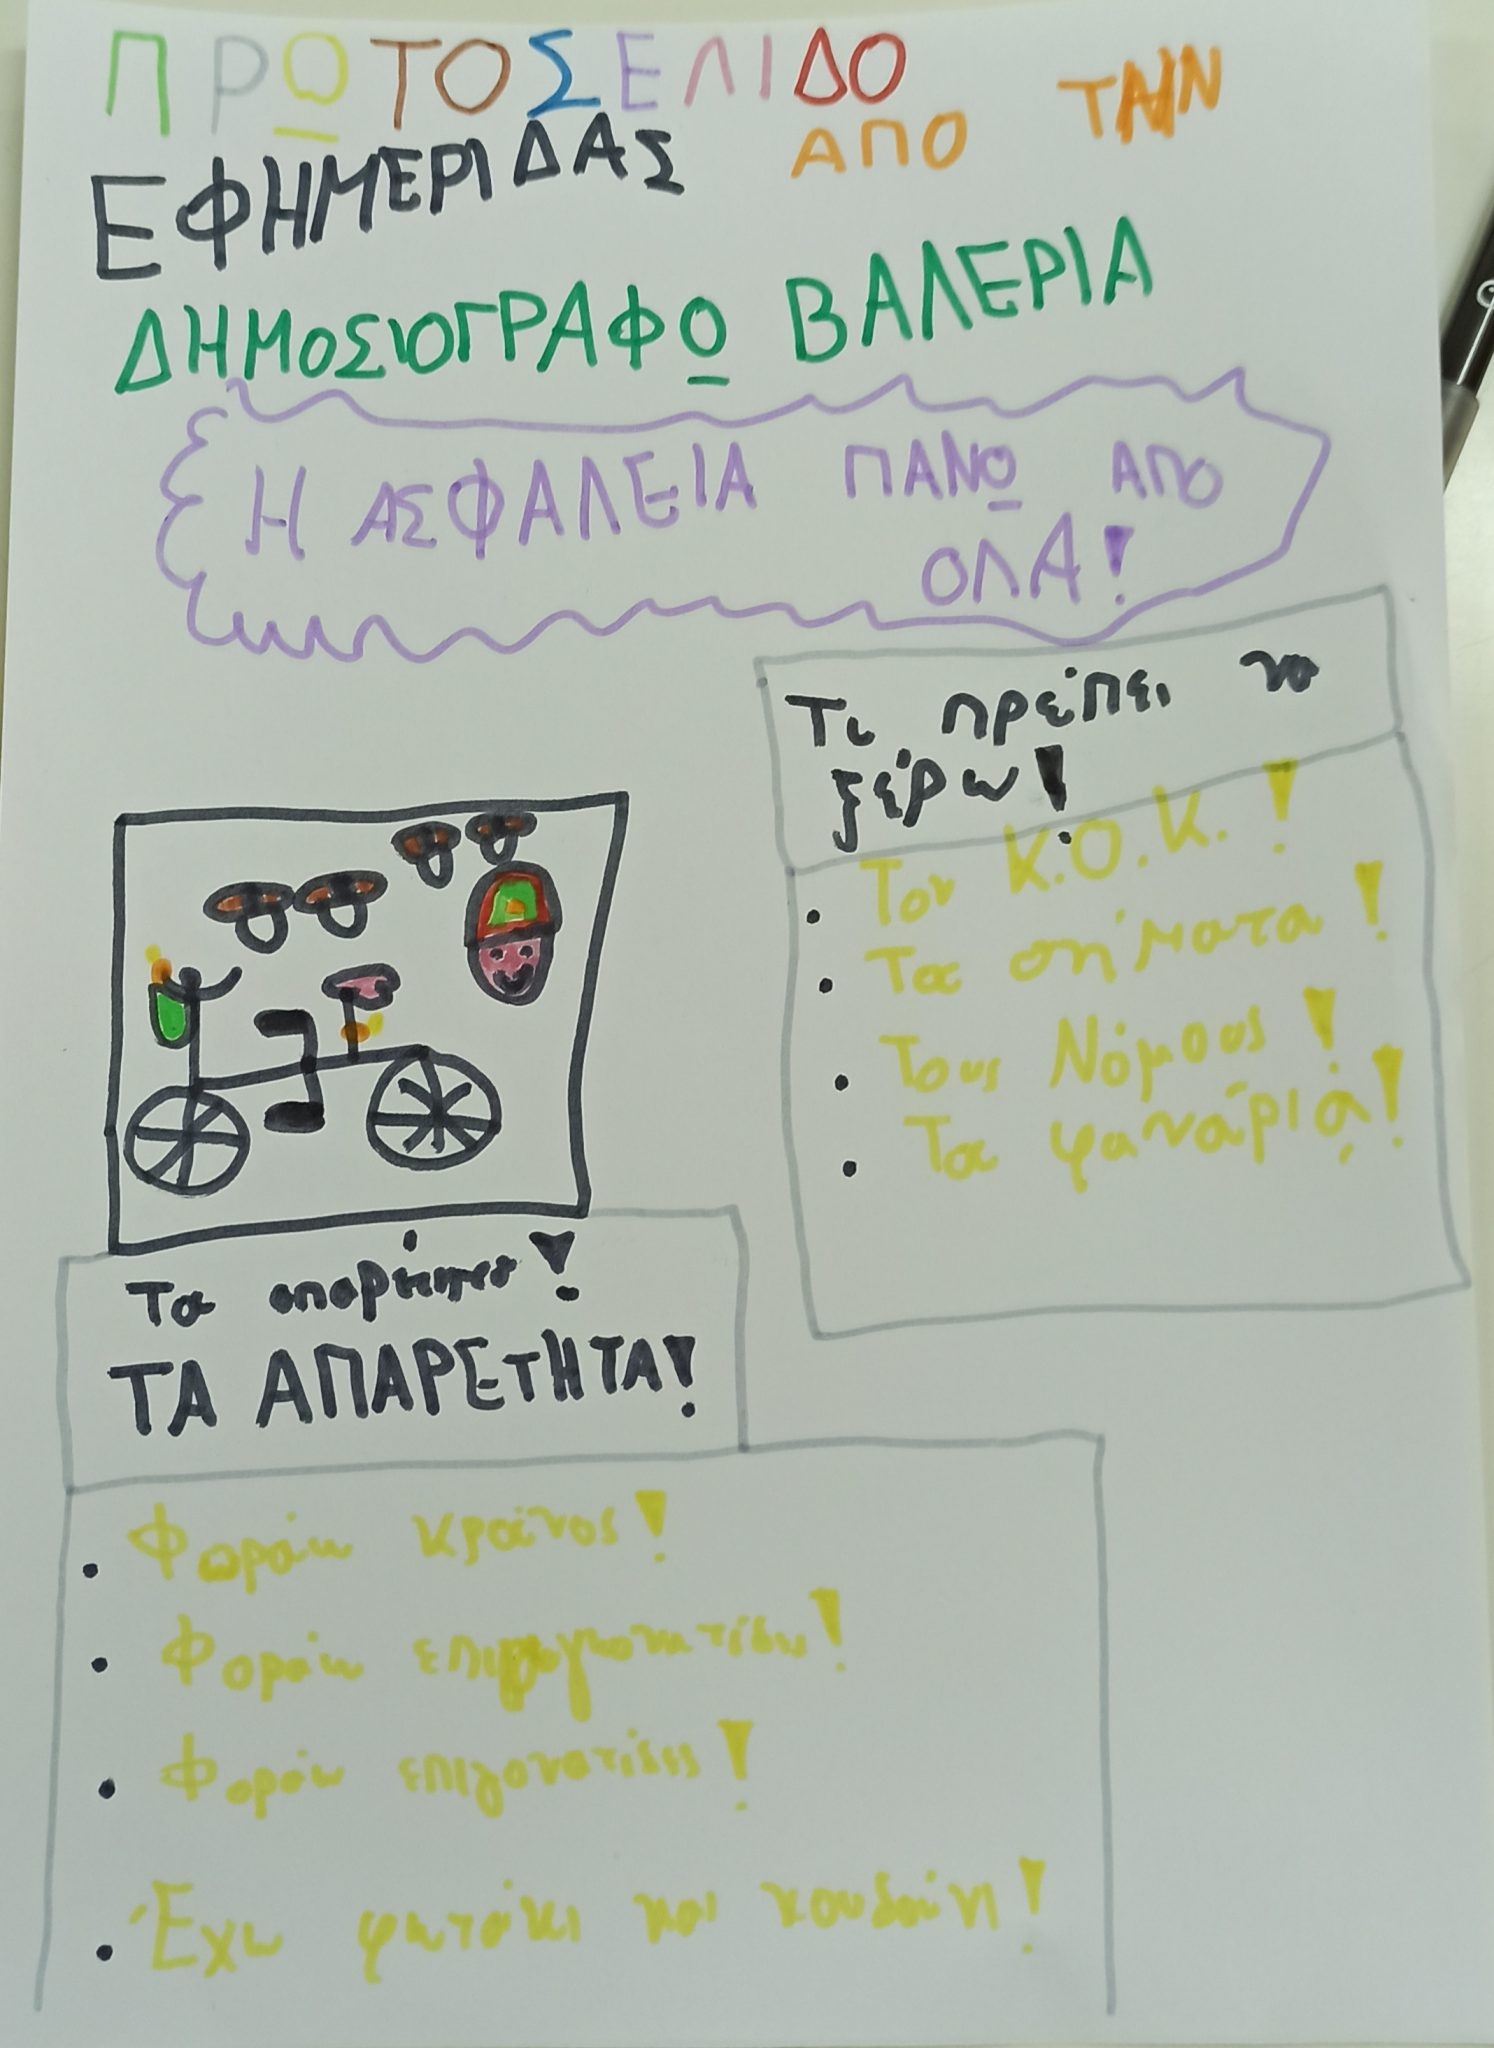 ΠΡΩΤΟΣΕΛΙΔΟ
ΕΦΗΜΕΡΙΔΑΣ ΑΠΟ ΤΗΝ
ΔΗΜΟΣΙΟΓΡΑΦΩ ΒΑΛΕΡΙΑ
Η ΑΣΦΑΛΕΙΑ ΠΑΝΩ ΑΠΟ
ΟΛΑ!
Τι πρέπει να
ξέρω!
• Τον Κ.Ο.Κ.!
• Τα σήματα!
• Τους Νόμους!
• Τα φανάρια!
Τα
ΤΑ ΑΠΑΡΕΤΗΤΑ!
• Φωράω κράνος!
• Φοράω
• Φοράω επιγονατίδες!
• Έχω φωτάκι και κουδούνι!